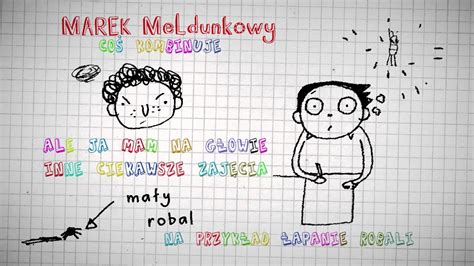 MAREK MeLdunkowy
COŚ KOMBINUJE
=
ALE JA MAM NA GŁOWIE
INNE CIEKAWSZE ZAJĘCIA
mały
robal
NA PRZYKŁAD ŁAPANIE ROBALI